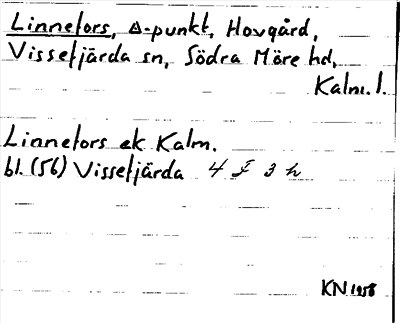 Linnefors, Δ-punkt, Hovgård,
Vissefjärda sn, Södra Möre hd,
Kalm. l.
Linnefors ek Kalm.
bl. (56) Vissefjärda 4 I 3 h
KN 1958